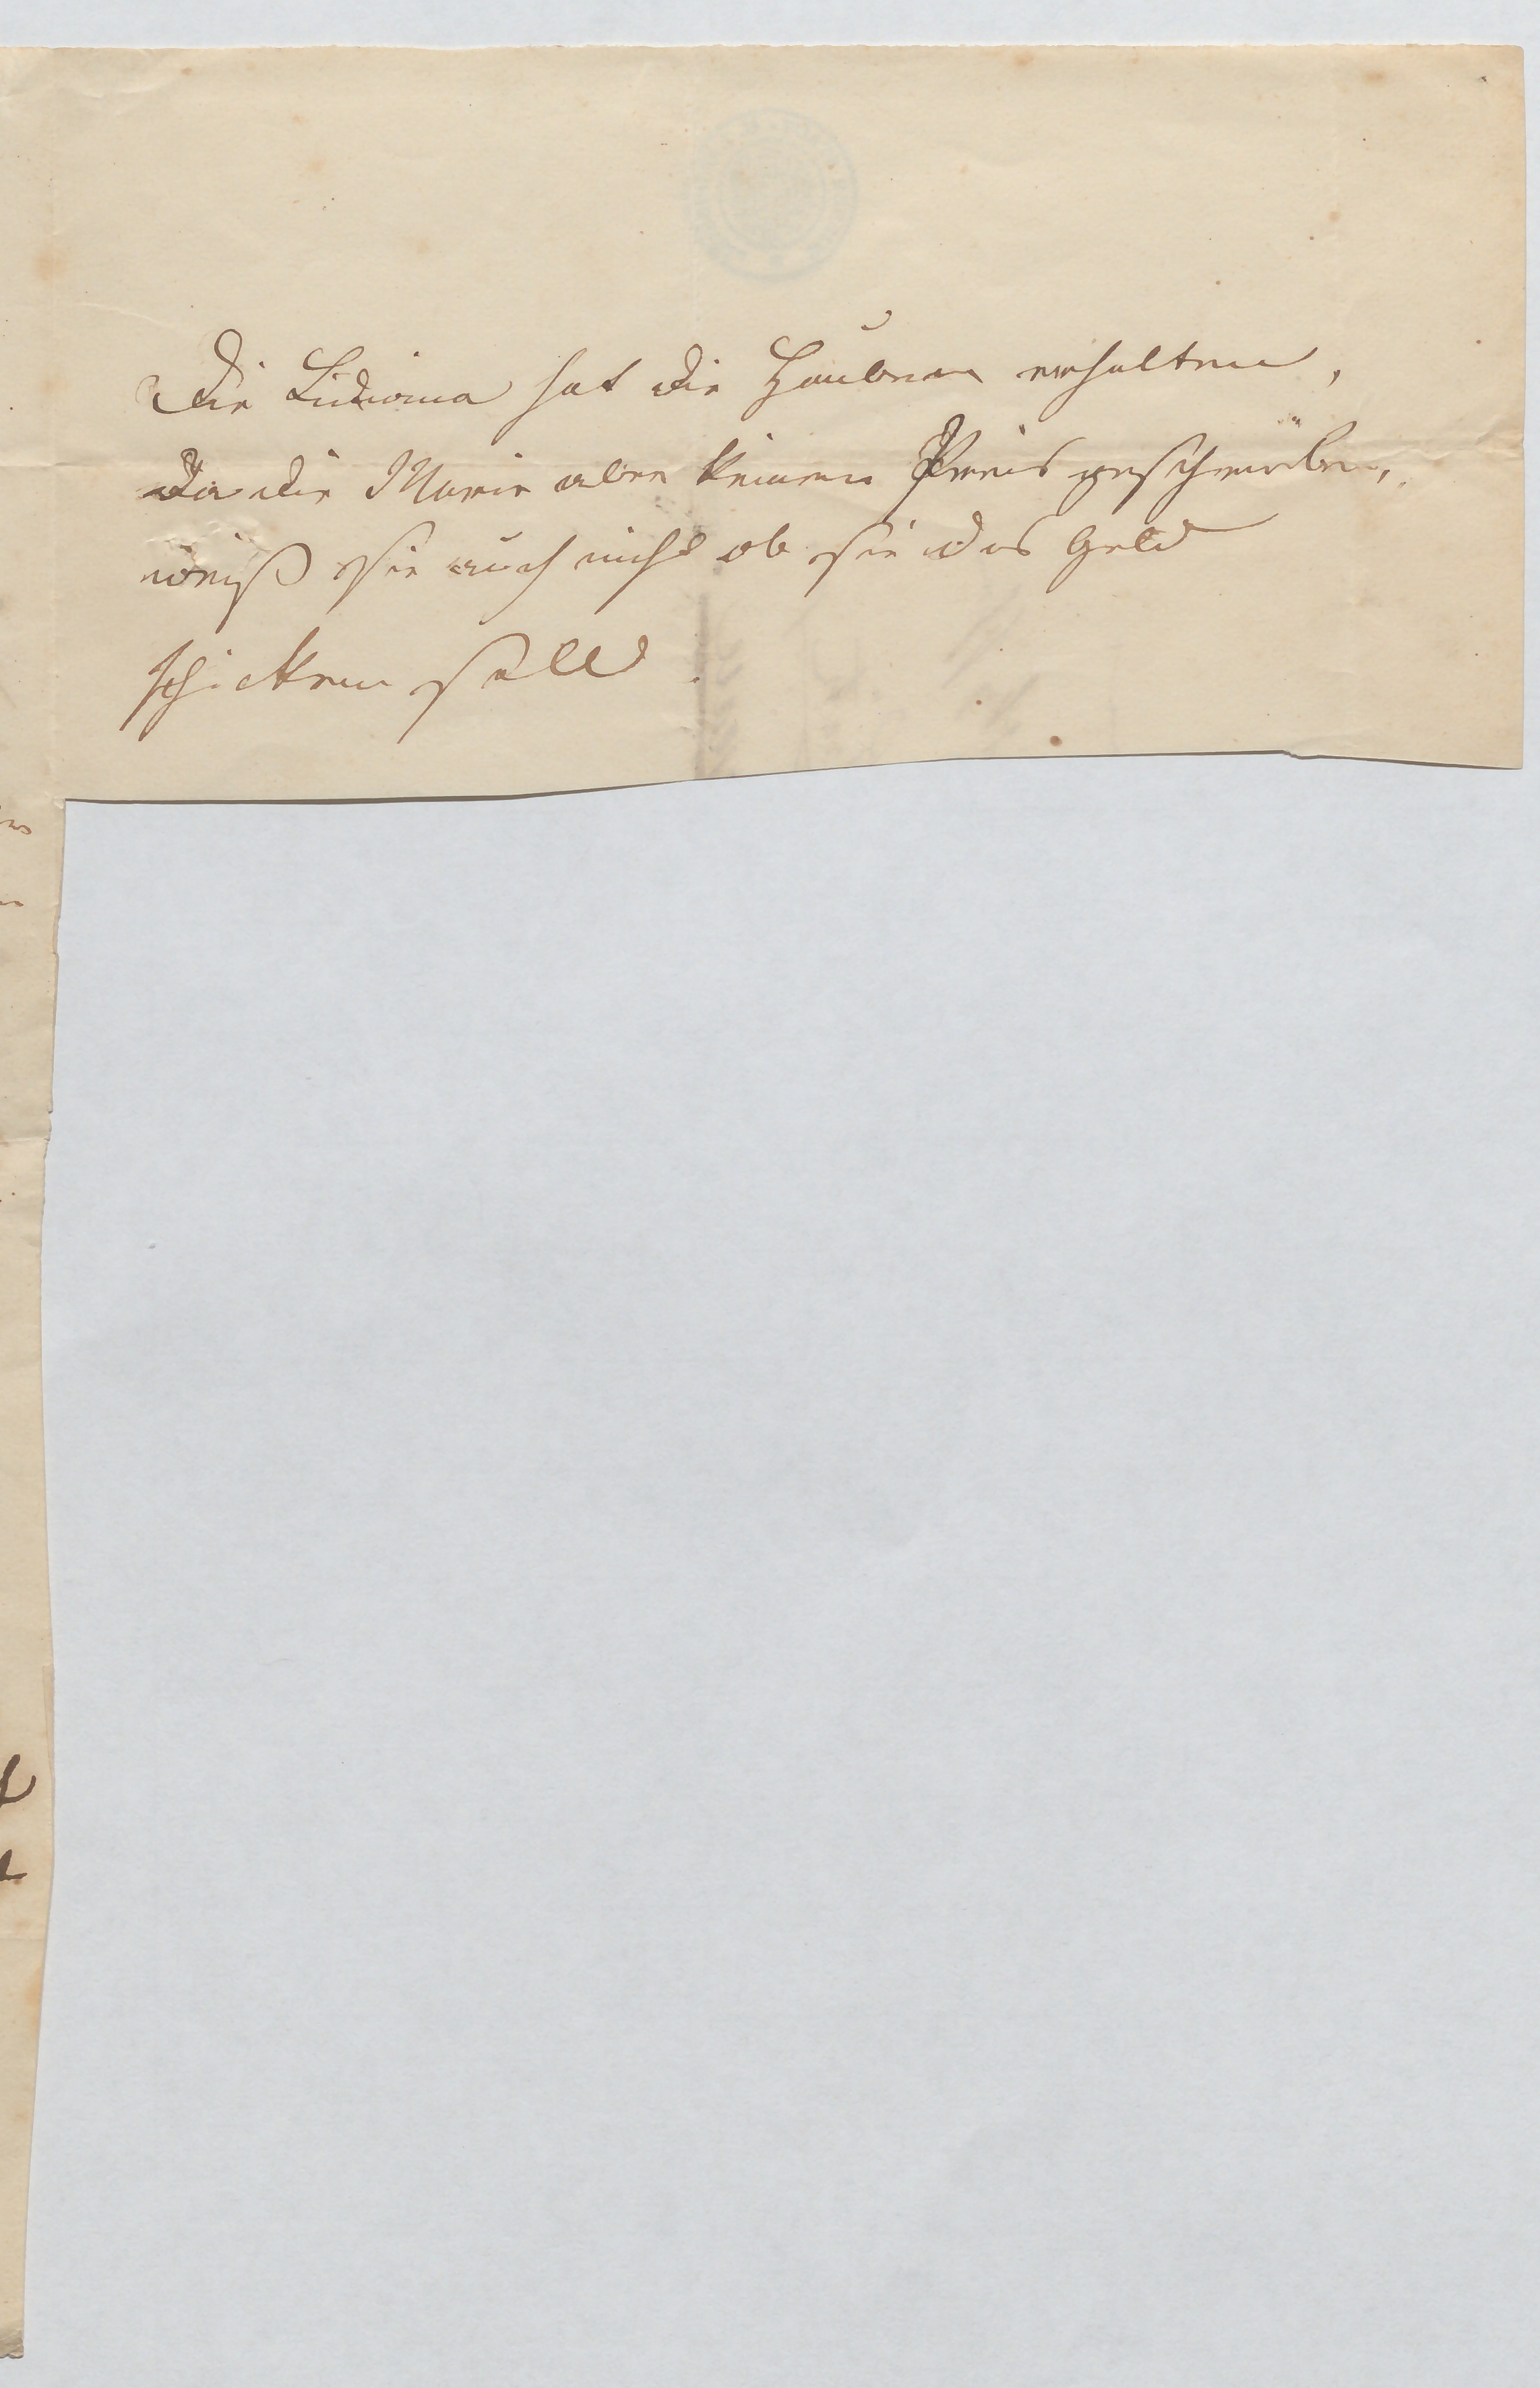 Die Lidwina hat die Hauben erhalten,
Da die Marie aber keinen Preis geschrieben,
weiß sie auch nicht ob sie das Geld
schicken soll